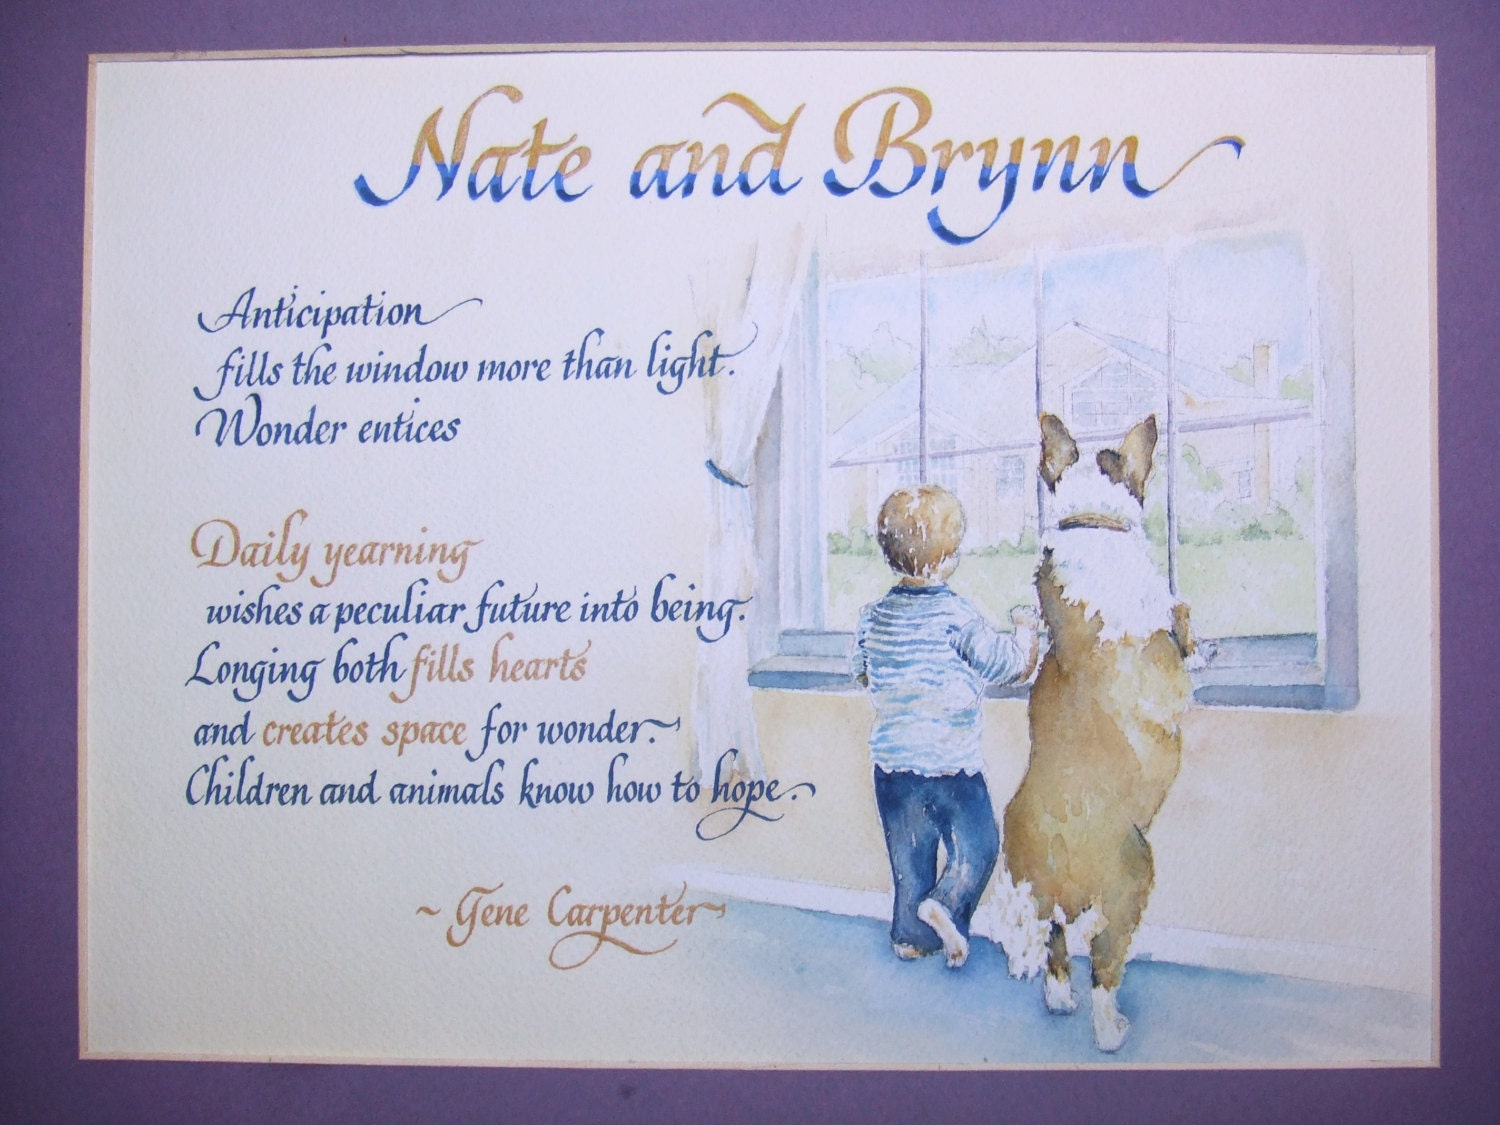 Nate and Brynn
Anticipation
fills the window more than light.
Wonder entices
Daily yearning
wishes a peculiar future into being.
Longing both fills hearts
and creates space for wonder.
Children and animals know how to hope.
~ Gene Carpenter